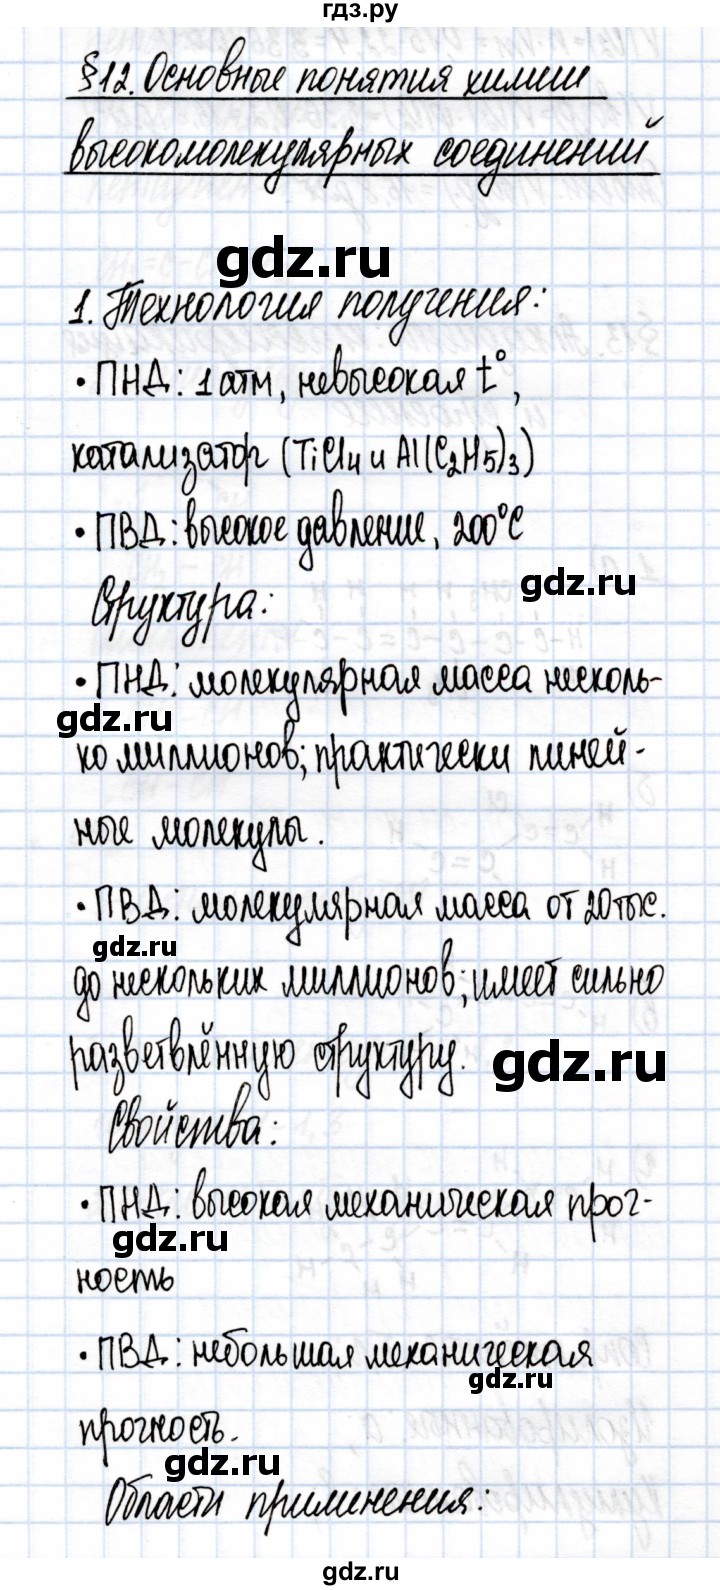 гдз.ру
§12. Основные понятия химии
высокомолекулярных соединений
gdz.ru
1. Технология получения:
• ПНД: 1 атм, невысокая t°,
катализатор (TiCl4 и Al(C2H5)3)
• ПВД: высокое давление, 200°C
gdz.ru
Структура:
• ПНД: молекулярная масса несколь-
gdz.ru
ко миллионов; практически линей-
ные молекулы.
• ПВД: молекулярная масса от 20 тыс.
gdz.ru
до нескольких миллионов; имеет сильно
разветвлённую структуру.
gdz.ru
Свойства:
• ПНД: высокая механическая проч-
gdz.ru
ность
• ПВД: небольшая механическая
gdz.ru
прочность.
gdz.ru
Области применения:
gdz.ru